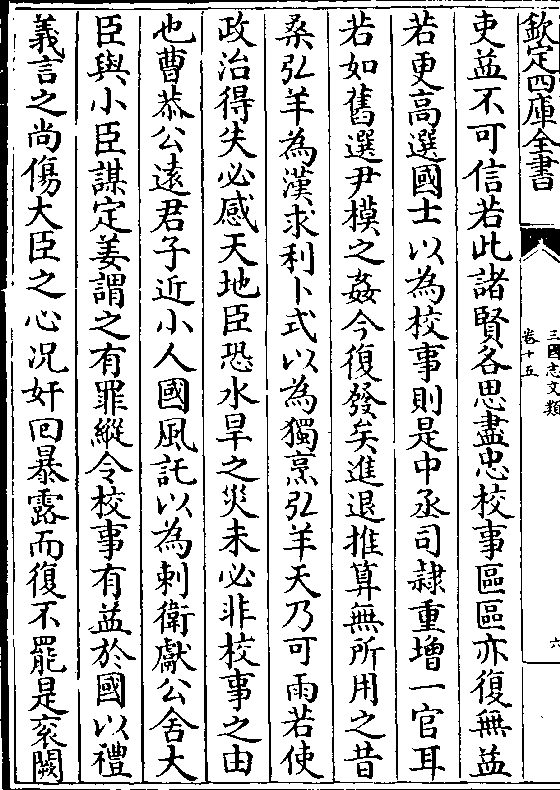 欽定四庫全書
三國志文類
卷十五
六
吏益不可信若此諸賢各思盡忠校事區區亦復無益
若更高選國士以為校事則是中丞司隷重增一官耳
若如舊選尹模之姦今復發矣進退推算無所用之昔
桑弘羊為漢求利卜式以為獨烹弘羊天乃可雨若使
政治得失必感天地臣恐水旱之災未必非校事之由
也曹恭公遠君子近小人國風託以為刺衛獻公舍大
臣與小臣謀定姜謂之有罪縱令校事有益於國以禮
義言之尚傷大臣之心况奸回暴露而復不罷是衮闕